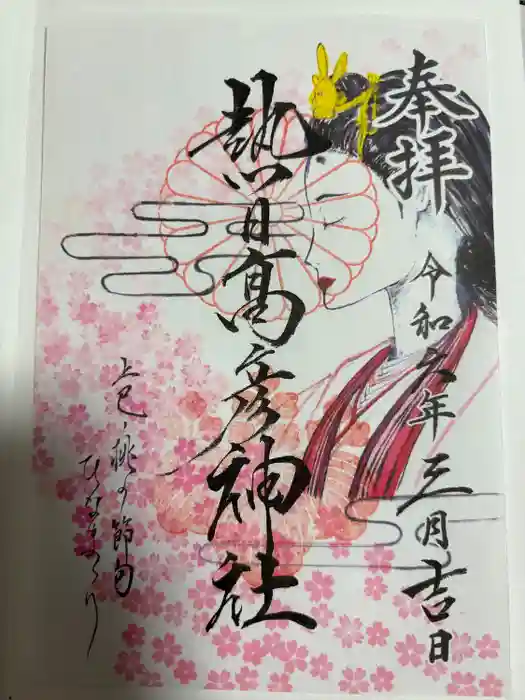 奉拝
令和六年三月吉日
熱日高彦神社
上巳・桃の節句
ひなまつり